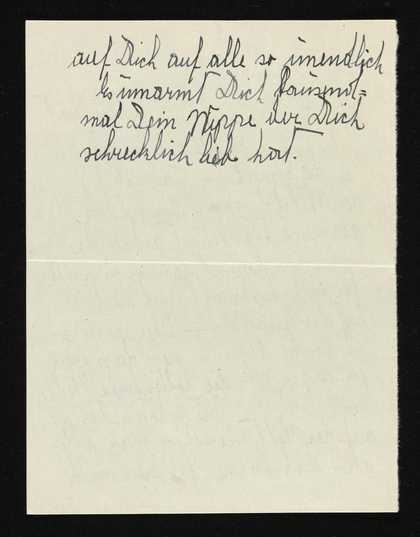 auf Dich auf alle so unendlich
Es umarmt Dich tausend=
mal Dein Wippe der Dich
schrecklich lieb hat.